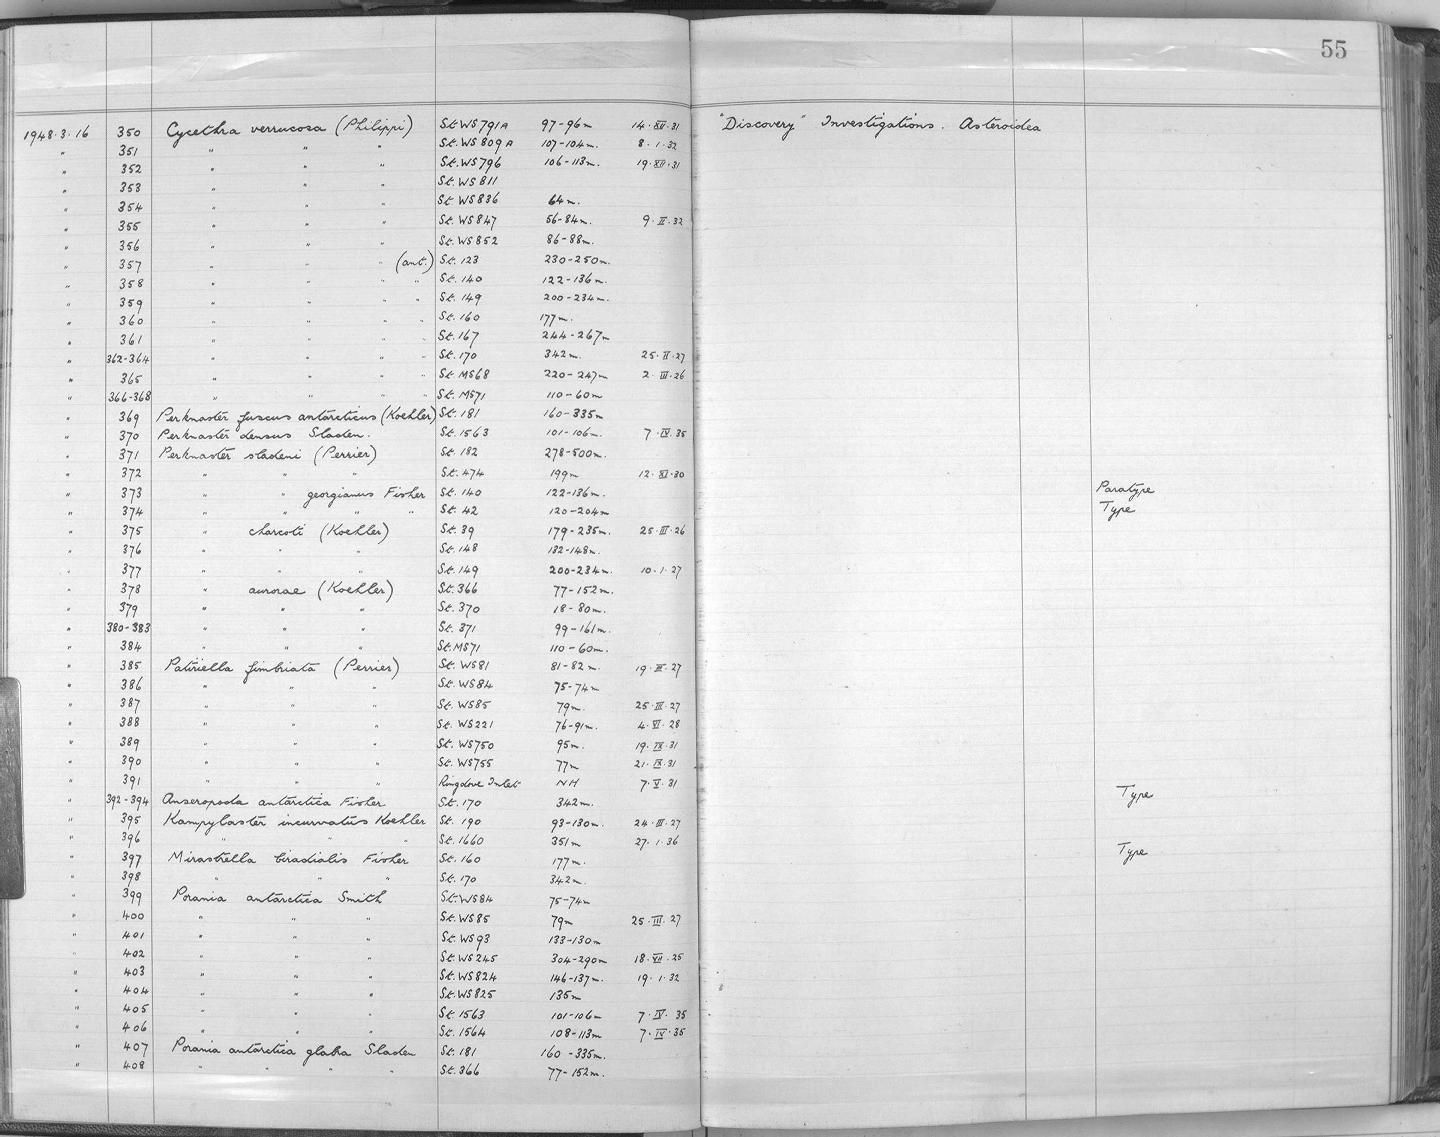 55
1948.3.16 350 Cycethra verrucosa (Philippi) St. WS791A 97-96m 14.XII.31 "Discovery" Investigations. Asteroidea
" 351 " " " St. WS809A 107-104m. 8.1.32
" 352 " " " St. WS796 106-113m. 19.XII.31
" 353 " " " St. WS811
" 354 " " " St. WS836 64m.
" 355 " " " St. WS847 56-84m. 9.II.32
" 356 " " " St. WS852 86-88m.
" 357 " " " (ant.) St. 123 230-250m.
" 358 " " " " St. 140 122-136m.
" 359 " " " " St. 149 200-234m.
" 360 " " " " St. 160 177m.
" 361 " " " " St. 167 244-267m
" 362-364 " " " " St. 170 342m. 25.II.27
" 365 " " " " St. MS68 220-247m 2.III.26
" 366-368 " " " " St. MS71 110-60m
" 369 Perknaster fuscus antarcticus (Koehler) St. 181 160-335m
" 370 Perknaster densus Sladen. St. 1563 101-106m. 7.IV.35
" 371 Perknaster sladeni (Perrier) St. 182 278-500m.
" 372 " " " St. 474 199m 12.XI.30
" 373 " " georgianus Fisher St. 140 122-136m. Paratype
" 374 " " " " St. 42 120-204m Type
" 375 " charcoti (Koehler) St. 39 179-235m. 25.III.26
" 376 " " " St. 148 132-148m.
" 377 " " " St. 149 200-234m. 10.1.27
" 378 " aurorae (Koehler) St. 366 77-152m.
" 379 " " " St. 370 18-80m.
" 380-383 " " " St. 371 99-161m.
" 384 " " " St. MS71 110-60m.
" 385 Patiriella fimbriata (Perrier) St. WS81 81-82m. 19.III.27
" 386 " " " St. WS84 75-74m
" 387 " " " St. WS85 79m. 25.III.27
" 388 " " " St. WS221 76-91m. 4.VI.28
" 389 " " " St. WS750 95m. 19.IX.31
" 390 " " " St. WS755 77m 21.IX.31
" 391 " " " Ringdove Inlet NH 7.V.31
" 392-394 Anseropoda antarctica Fisher St. 170 342m. Type
" 395 Kampylaster incurvatus Koehler St. 190 93-130m. 24.III.27
" 396 " " " St. 1660 351m 27.1.36
" 397 Mirastrella biradialis Fisher St. 160 177m. Type
" 398 " " " St. 170 342m.
" 399 Porania antarctica Smith St. WS84 75-74m
" 400 " " " St. WS85 79m 25.III.27
" 401 " " " St. WS93 133-130m
" 402 " " " St. WS245 304-290m 18.VII.25
" 403 " " " St. WS824 146-137m. 19.1.32
" 404 " " " St. WS825 135m
" 405 " " " St. 1563 101-106m 7.IV.35
" 406 " " " St. 1564 108-113m 7.IV.35
" 407 Porania antarctica glabra Sladen St. 181 160-335m.
" 408 " " " " St. 366 77-152m.